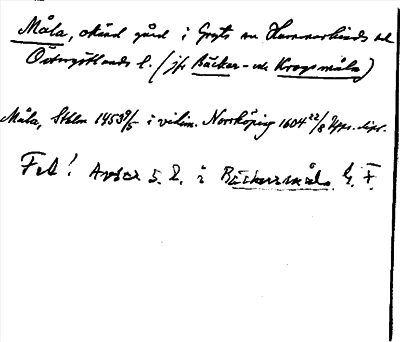 Måla, okänd gård i Gryts sn Hammarkinds hd
Östergötlands l. (jfr Bäckar- och Krogsmåla)
Måla, Sthlm 1453 9/5 i vidim. Norrköping 1604 22/8 Uppr. dipl.
Fel! Avser S. D. i Bäckersmåla. G. F.